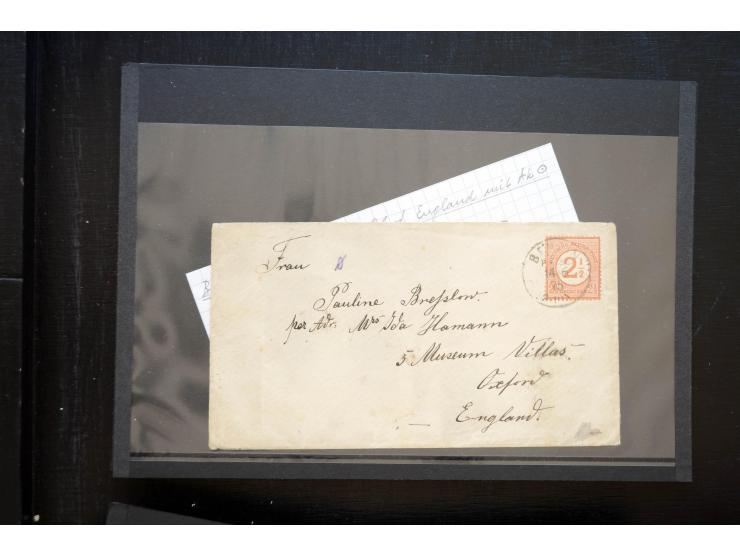 England mit Ak
Frau
Pauline Breſslow.
per Adr. Mrs Ida Hamann
5 Museum Villas.
Oxford
England.
2½
75